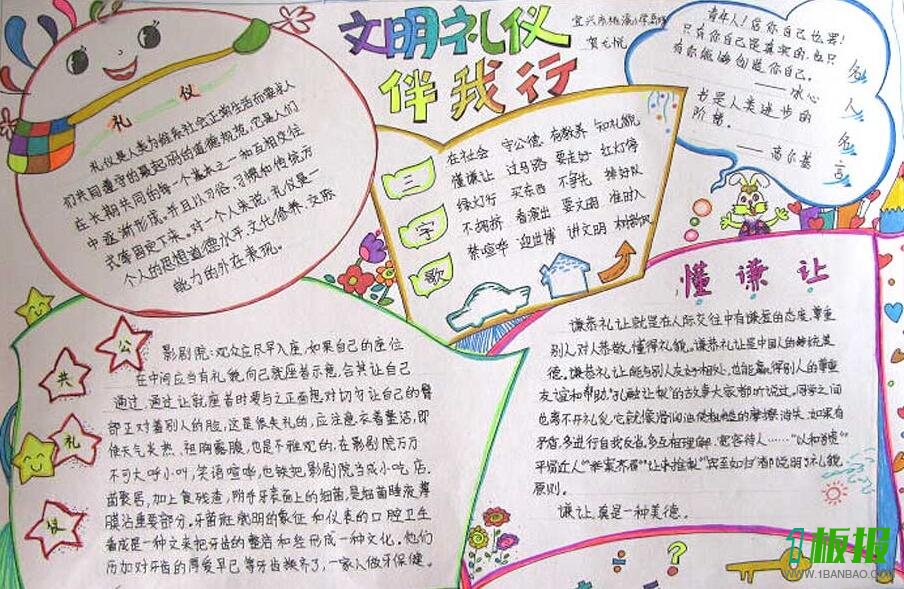 文明礼仪
伴我行
礼 仪
礼仪是人类为维系社会正常生活而要求人
们共同遵守的最起码的道德规范,它是人们
在长期共同的每一个基本之一和互相交往
中逐渐形成。并且以习俗、习惯和传统方
式等固定下来。对一个人来说,礼仪是一
个人的思想道德水平、文化修养、交际
能力的外在表现。
三
字
歌
在社会 守公德 有教养 知礼貌
懂谦让 过马路 要走好 红灯停
绿灯行 买东西 不争先 排好队
不拥挤 看演出 要文明 准时入
禁喧哗 迎世博 讲文明 树新风
青年人!信你自己也罢!
只有你自己是真实的,也只
有你能够创造你自己。
——冰心
书是人类进步的
阶梯。
——高尔基
名
人
名
言
公
共
礼
仪
影剧院:观众应尽早入座,如果自己的座位
在中间应当有礼貌向已就座者示意,会其让自己
通过,通过让就座者时要与之正面想对切勿让自己的臀
部正对着别人的脸,这是很失礼的,应注意衣着整洁,即
使天气炎热、袒胸露腹,也是不雅观的,在影剧院万万
不可大呼小叫,笑语喧哗,也铁把影剧院当成小吃店.
菌聚居,加上食残渣,附于牙表面上的细菌,是细菌唾液薄
膜沾重要部分。
看成是一种文来把牙齿的整洁和
一种文化。他们
一家人做牙保健。
懂 谦 让
谦恭礼让就是在人际交往中有谦虚的态度,尊重
别人,对人恭敬,懂得礼貌。谦恭礼让是中国人的传统美
德。谦恭礼让能与别人友好相处,也能赢得别人的尊重
友谊和帮助"孔融让梨"的故事大家都听说过。同学之间
也离不开礼貌,它就像润滑油使粗糙的摩擦消失,如果有
矛盾,多进行自我反省,多互相理解,宽容待人……"以和为贵"
平易近人""举案齐眉""让
宾至如归"都说明了礼貌
原则。
谦让,真是一种美德。
÷ ?
1板报
WWW.1BANBAO.COM